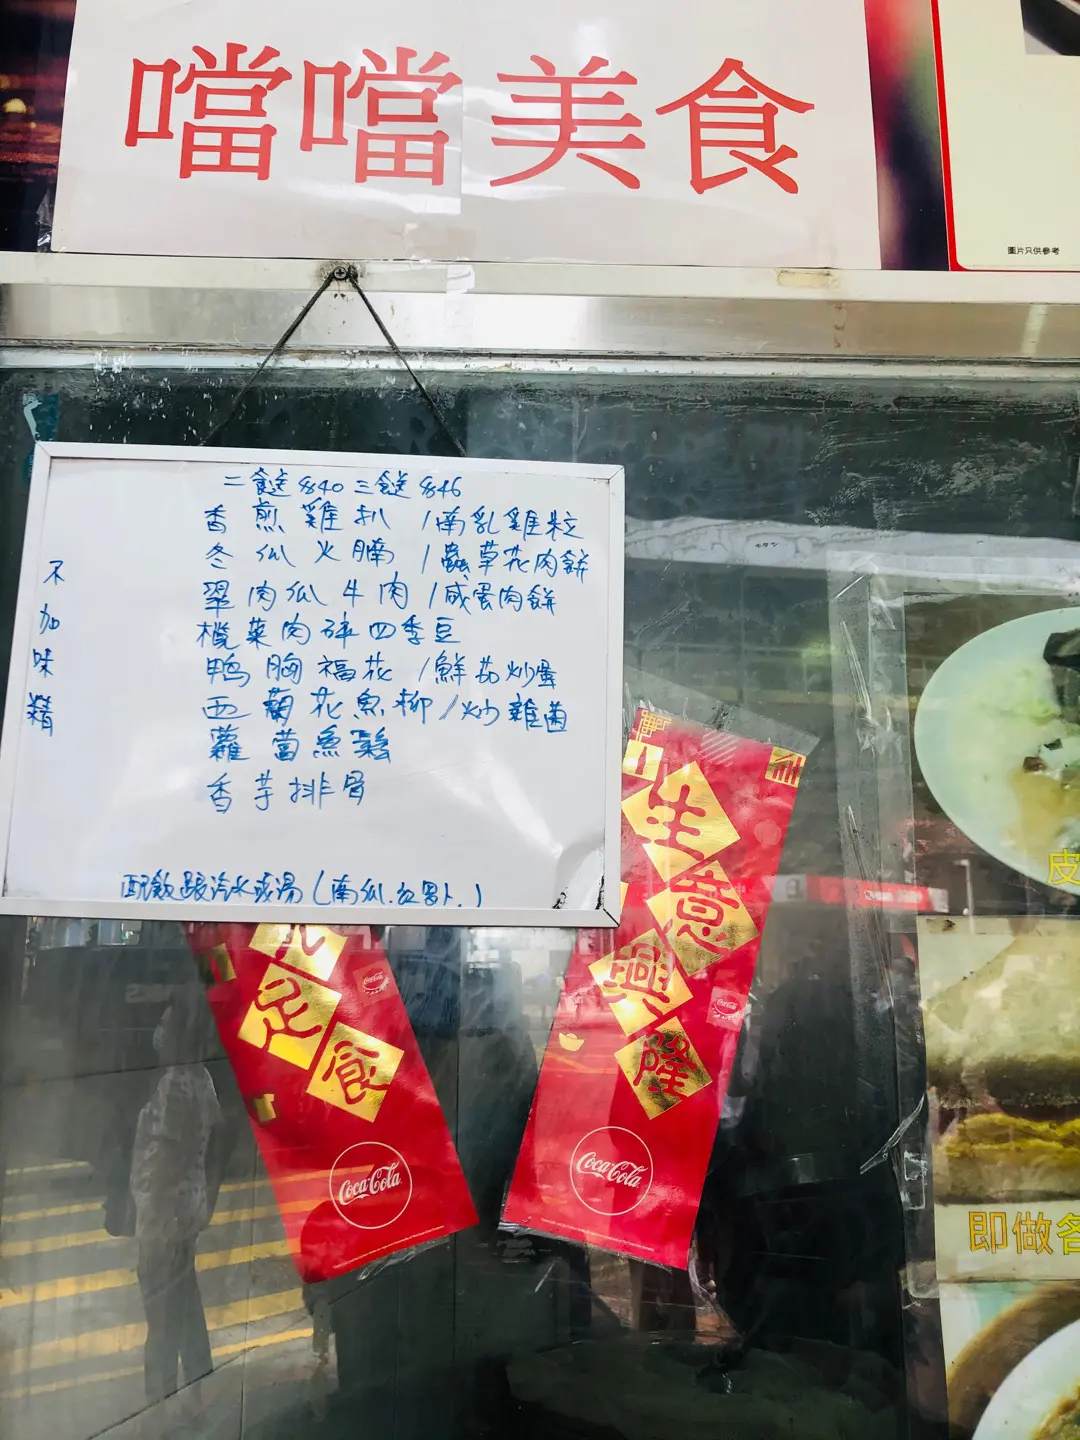 噹噹美食
圖片只供參考
二餸$40 三餸$46
香煎雞扒 /南乳雞粒
冬瓜火腩 /蟲草花肉餅
翠肉瓜牛肉 /咸蛋肉餅
欖菜肉碎四季豆
鴨胸福花 /鮮茄炒蛋
西蘭花魚柳 /炒雜菌
蘿蔔魚鬆
香芋排骨
不加味精
配飲跟汽水或湯(南瓜.紅蔔.)
生意興隆
Coca-Cola
Coca-Cola
足食
Coca-Cola
Coca-Cola
皮
即做各